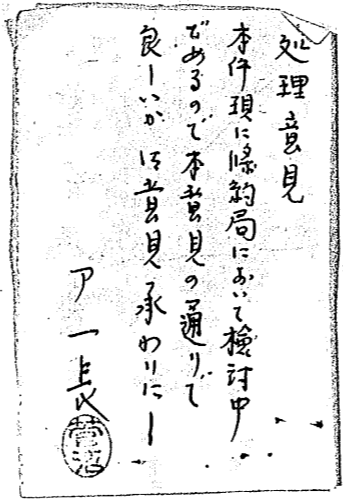 処理意見
本件現に條約局において檢討中
であるので本意見の通りで
良しいか御意見承わりたし
ア一長
菅沼